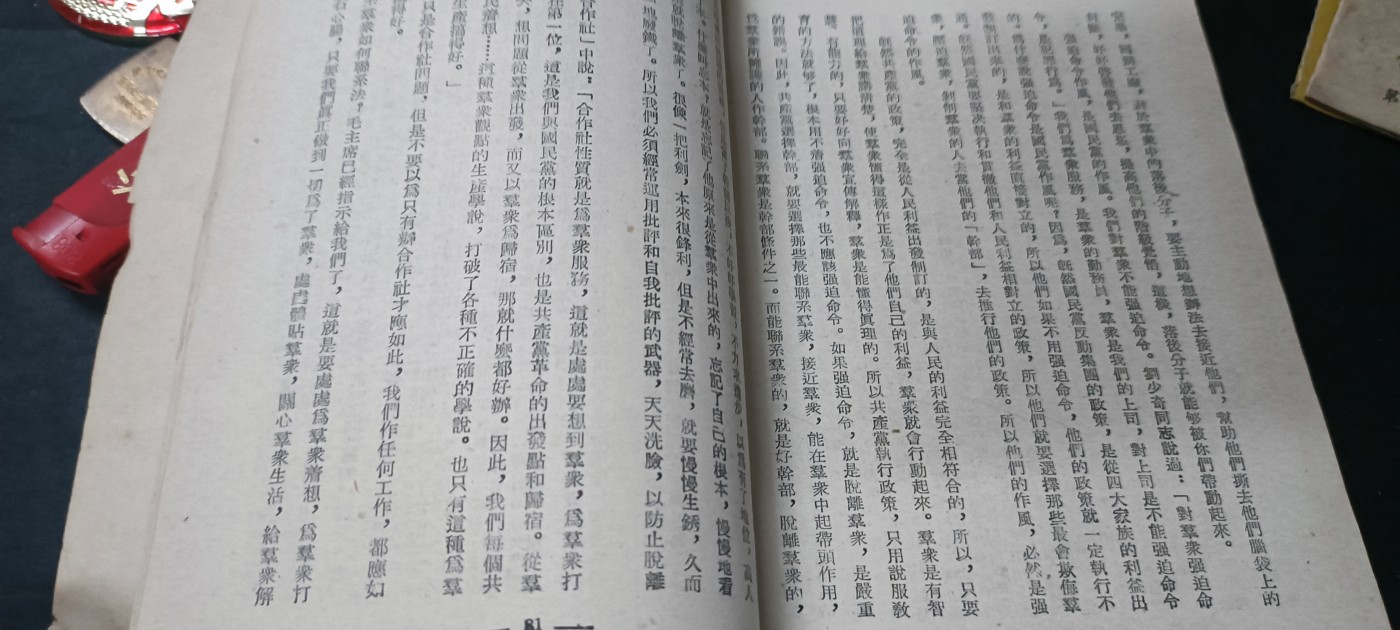 ，回到工廠，對於羣衆中的落後分子，要主動地想辦法去接近他們，幫助他們撕去他們腦袋上的
封條，好好啓發他們去思想，提高他們的階級覺悟，這樣，落後分子就能够被你們帶動起來。
强迫命令作風，是國民黨的作風。我們對羣衆不能强迫命令。劉少奇同志說過：「對羣衆强迫命
令，是犯罪行爲。」我們爲羣衆服務，是羣衆的勤務員，羣衆是我們的上司，對上司是不能强迫命令
的。爲什麽說强迫命令是國民黨作風呢？因爲，旣然國民黨反動集團的政策，是從四大家族的利益出
發制訂出來的，是和羣衆的利益直接對立的，所以他們如果不用强迫命令，他們的政策就一定執行不
通。旣然國民黨要堅决執行和貫徹他們和人民利益相對立的政策，所以他們就要選擇那些最會欺侮羣
衆，壓迫羣衆，剝削羣衆的人去當他們的「幹部」，去推行他們的政策。所以他們的作風，必然是强
迫命令的作風。
旣然共產黨的政策，完全是從人民利益出發制訂的，是與人民的利益完全相符合的，所以，只要
把道理給羣衆講清楚，使羣衆懂得這樣作正是爲了他們自己的利益，羣衆就會行動起來。羣衆是有智
慧、有能力的，只要好好向羣衆宣傳解釋，羣衆是能懂得眞理的。所以共產黨執行政策，只用說服敎
育的方法就够了，根本用不着强迫命令，也不應該强迫命令。如果强迫命令，就是脫離羣衆，是嚴重
的錯誤。因此，共產黨選擇幹部，就要選擇那些最能聯系羣衆，接近羣衆，能在羣衆中起帶頭作用，
爲羣衆所擁護的人作幹部。聯系羣衆是幹部條件之一。而能聯系羣衆的，就是好幹部，脫離羣衆的，
不力求進步，以爲有了地位，高人
什麽叫忘本，就是忘記了他原來是從羣衆中出來的，忘記了自己的根本，慢慢地看
就脫離羣衆了。很像一把利劍，本來很鋒利，但是不經常去磨，就要慢慢生銹，久而
塊廢鐵了。所以我們必須經常運用批評和自我批評的武器，天天洗臉，以防止脫離
合作社」中說：「合作社性質就是爲羣衆服務，這就是處處要想到羣衆，爲羣衆打
在第一位，這是我們與國民黨的根本區別，也是共產黨革命的出發點和歸宿。從羣
，想問題從羣衆出發，而又以羣衆爲歸宿，那就什麽都好辦。因此，我們每個共
民着想……這種羣衆觀點的生產學說，打破了各種不正確的學說。也只有這種爲羣
生產搞得好。」
只是合作社問題，但是不要以爲只有辦合作社才應如此，我們作任何工作，都應如
得好。
羣衆如何聯系法？毛主席已經指示給我們了，這就是要處處爲羣衆着想，爲羣衆打
心腸，只要我們眞正做到一切爲了羣衆，處處體貼羣衆，關心羣衆生活，給羣衆解
81
第